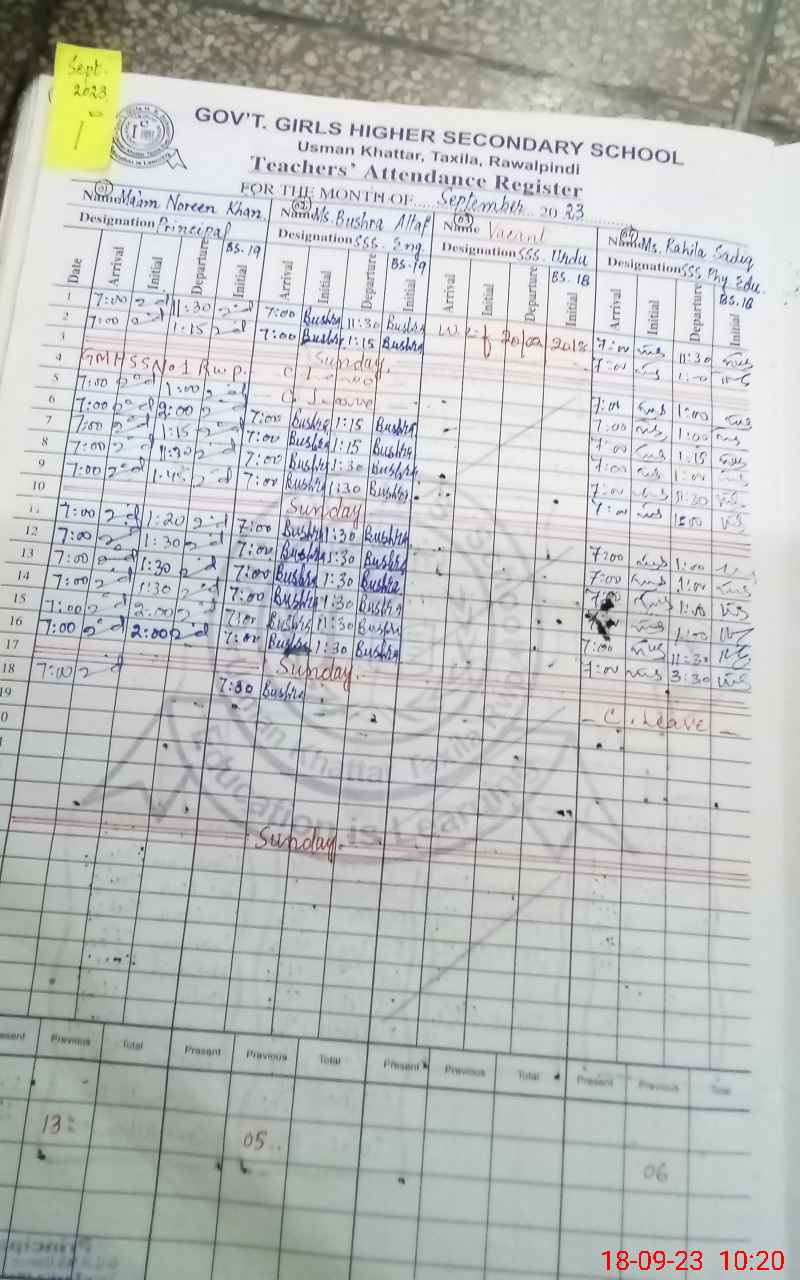 Sept.
2023
I
GOV'T. GIRLS HIGHER SECONDARY SCHOOL
Usman Khattar, Taxila, Rawalpindi
Teachers' Attendance Register
FOR THE MONTH OF.....September...2023
01 Name Ma'am Noreen Khan. 02 Name Ms. Bushra Altaf 03 Name Vacant 04 Name Ms. Rahila Sadiq
Designation Principal BS.19 Designation SSS. Eng BS.19 Designation SSS. Urdu BS.18 Designation SSS Phy Edu. BS.18
Date Arrival Initial Departure Initial Arrival Initial Departure Initial Arrival Initial Departure Initial Arrival Initial Departure Initial
1 7:00 11:30 7:00 Bushra 11:30 Bushra 7:00 11:30
2 7:00 1:15 7:00 Bushra 1:15 Bushra 7:00
3 Sunday
4 GMHSS No 1 Rwp. C. Leave 7:00 1:00
5 7:00 1:00 C. Leave 7:00 1:00
6 7:00 2:00 7:00 Bushra 1:15 Bushra 7:00 1:15
7 7:00 1:15 7:00 Bushra 1:15 Bushra 7:00 1:00
8 7:00 11:30 7:00 Bushra 11:30 Bushra 7:00 11:30
9 7:00 1:45 7:00 Bushra 1:30 Bushra 7:00
10 Sunday
11 7:00 1:20 7:00 Bushra 1:30 Bushra 7:00 1:00
12 7:00 1:30 7:00 Bushra 1:30 Bushra 7:00 1:00
13 7:00 1:30 7:00 Bushra 1:30 Bushra 7:00
14 7:00 1:30 7:00 Bushra 1:30 Bushra 1:00
15 7:00 2:00 7:00 Bushra 11:30 Bushra 7:00 11:30
16 7:00 2:00 7:00 Bushra 1:30 Bushra 7:00 3:30
17 Sunday
18 7:00 7:30 Bushra C. Leave
19
Usman Khattar Taxila Rwp
Education is Learning
Sunday
Present Previous Total Present Previous Total Present Previous Total Present Previous Total
13 05 06
18-09-23 10:20